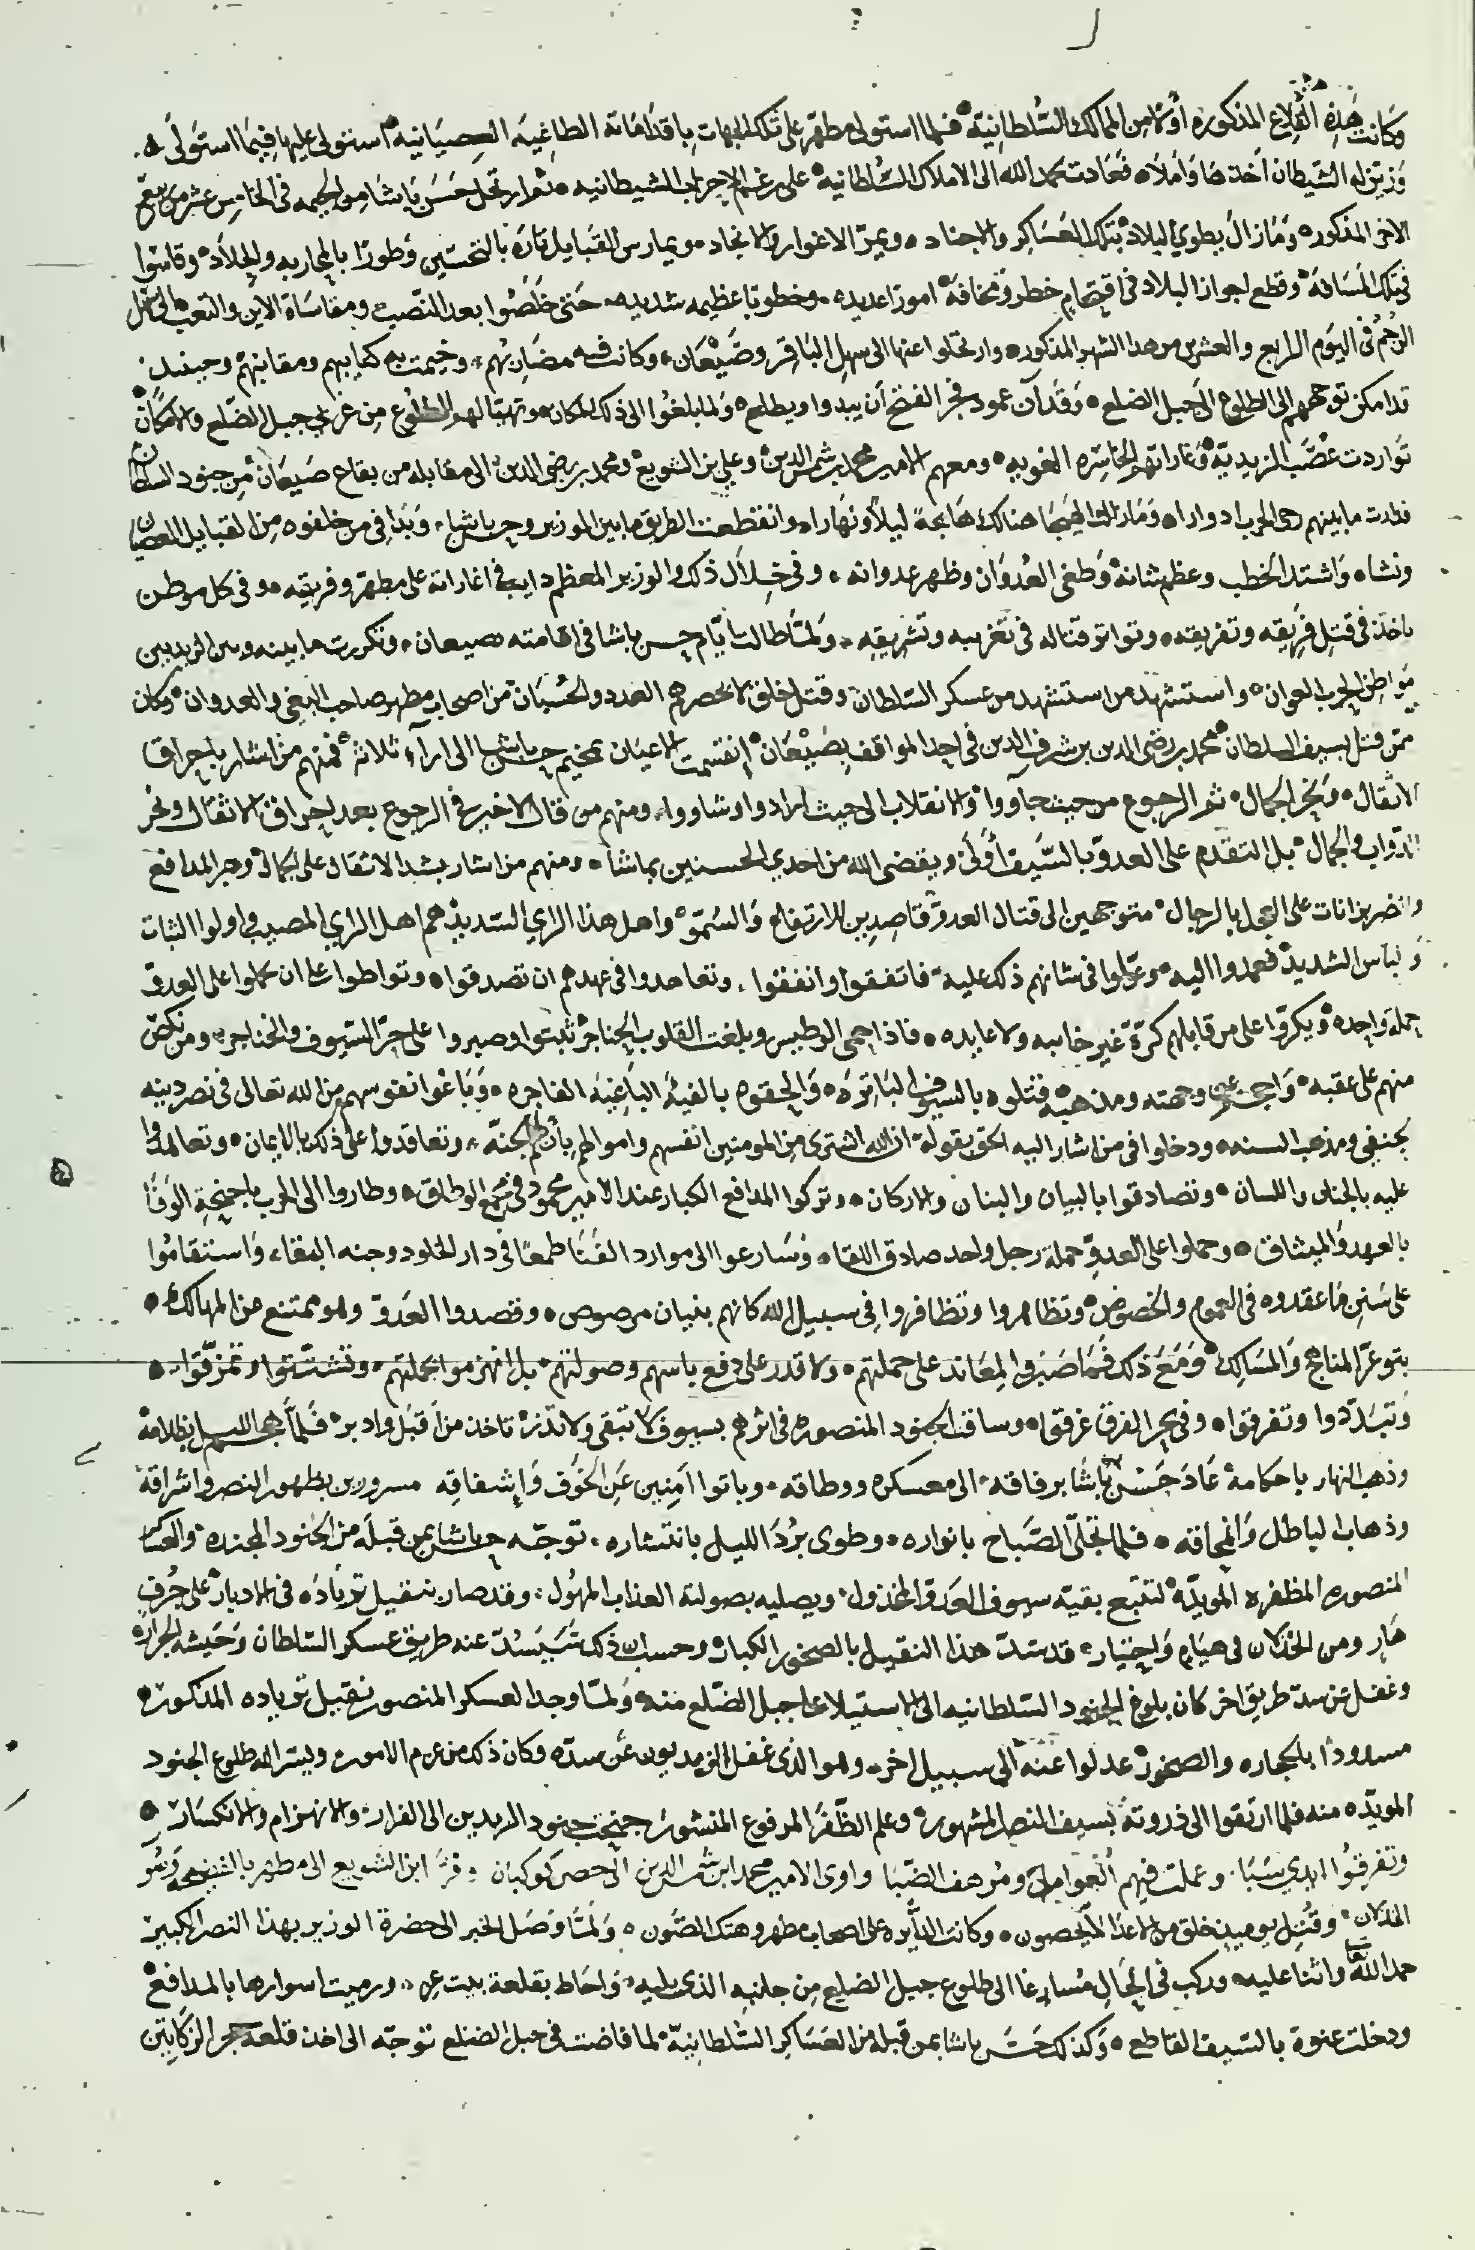 وكانت هذه القلاع المذكوره أولا من الممالك السلطانية فلما استولى مطهر على تلك الجهات باقدامات الطاغيه العصيانيه استولى عليها فيما استولى
وزين له الشيطان اخذها واملاه فعادت بحمد الله الى الاملاك السلطانيه على رغم الاحزاب الشيطانيه ثم ارتحل حسن باشا من الجمه في الخامس عشر من ربيع
الاخر المذكور وما زال يطوي البلاد بتلك العساكر والاجناد ويمر الاغوار والانجاد ويمارس القبايل تارة بالتحسين وطورا بالمحاربه والجلاد وقاسوا
في تلك المسافة وقطع اجواز البلاد في اقتحام خطر ومخافة امورا عديده وخطوبا عظيمه شديده حتى خلصوا بعد النصب ومقاساة الاين والتعب الى
الرجم في اليوم الرابع والعشرين من هذا الشهر المذكور وارتحلوا عنها الى سهل الباقر وضيعان وكانت فيه مضاربهم وخيمت به كتايبهم ومقانبهم وحينئذ
قد امكن توجههم الى الطلوع الى جبل الضلع وقد آن عمود فجر الفتح أن يبدوا ويطلع ولما بلغوا الى ذلك المكان وتهيا لهم الطلوع من غربي جبل الضلع والامكان
تواردت عصب الزيدية وغاراتهم الخاسره الغويه ومعهم الامير محمد بن شمس الدين وعلي بن الشويع ومحمد بن رضي الدين الى مقابله من بقاع ضيعان من جنود السلطان
فدارت ما بينهم رحى الحرب ادوارا وما زالت الهيجا هنالك هايجة ليلا ونهارا وانقطعت الطريق ما بين الوزير وحسن باشا وبدا في من خلفوه من القبايل العصيان
ونشا واشتد الخطب وعظم شانه وطغى العدوان وظهر عدوانه وفي خلال ذلك والوزير المعظم دايب في اغاراته على مطهر وفريقه وفي كل موطن
ياخذ في قتل فريقه وتفريقه وتواتر قتاله في تغريبه وتشريقه ولما طالت ايام حسن باشا في اقامته بضيعان وتكررت ما بينه وبين الزيديين
مواطن الحرب العوان واستشهد من استشهد من عسكر السلطان وقتل خلق لا يحصرهم العدد والحسبان من اصحاب مطهر صاحب البغي والعدوان وكان
ممن قتل بسيف السلطان محمد بن رضي الدين بن شرف الدين في احد المواقف بضيعان انقسمت الاعيان بمخيم حسن باشا الى آراء ثلاثة فمنهم من اشار باحراق
الاثقال ونحر الجمال ثم الرجوع من حيث جاووا والانقلاب الى حيث ارادوا وشاووا ومنهم من قال لا خير في الرجوع بعد احراق الاثقال ونحر
الدواب والجمال بل التقدم على العدو بالسيف أولى ويقضي الله من احدى الحسنيين بما شا ومنهم من اشار بشد الاثقال على الجمال وجر المدافع
والضربزانات على العجل بالرجال متوجهين الى قتال العدو قاصدين للارتفاع والسمو واهل هذا الراي السديد هم اهل الراي المصيب واولوا الثبات
والباس الشديد فعمدوا اليه وعولوا في شانهم ذلك عليه فاتفقوا وانفقوا وتعاهدوا في عهدهم ان تصدقوا وتواطوا على ان يحملوا على العدو
حملة واحده ويكروا على من قابلهم كرة غير خايبه ولا عايده فاذا حمي الوطيس وبلغت القلوب الحناجر ثبتوا وصبروا على حر السيوف والخناجر ومن نكص
منهم على عقبه وجهته ومذهبه قتلوه بالسيوف الباتره والحقوه بالفئة الباغية الفاجره وباعوا نفوسهم من الله تعالى في نصر دينه
الحنيفي ومذهب السنه ودخلوا في من اشار اليه الحق بقوله ان الله اشترى من المومنين انفسهم واموالهم بأن لهم الجنة وتعاقدوا على ذلك بالايمان وتعاهدوا
عليه بالجنان واللسان وتصادقوا بالبيان والبنان والاركان وتركوا المدافع الكبار عند الامير محمود في الوطاق وطاروا الى الحرب باجنحة الوفا
بالعهد والميثاق وحملوا على العدو حملة رجل واحد صادق اللقا وسارعوا الى موارد الفنا طمعا في دار الخلود وجنه البقاء واستقاموا
على سنن ما عقدوه في العموم والخصوص وتظاهروا وتظافروا في سبيل الله كانهم بنيان مرصوص وقصدوا العدو وهو ممتنع من المهالك
بتوعر المناهج والمسالك ومع ذلك فما صبر المعاند على حملتهم ولا قدر على دفع باسهم وصولتهم بل انهزموا بجملتهم وتشتتوا وتمزقوا
وتبددوا وتفرقوا وفي بحر الفرق غرقوا وساقت الجنود المنصوره في اثرهم بسيوف لا تبقي ولا تذر تاخذ من اقبل وادبر فلما هجم الليل بظلامه
وذهب النهار باحكامه عاد حسن باشا برفاقه الى معسكره ووطاقه وباتوا آمنين عن الخوف وإشفاقه مسرورين بظهور النصر واشراقه
وذهاب الباطل وانمحاقه فلما تجلى الصباح بانواره وطوى برد الليل بانتشاره توجه حسن باشا بمن قبله من الجنود المجنده والعساكر
المنصوره المظفره المويده لتتبع بقية سيوف العدو المخذول ويصليه بصولة العذاب المهول وقد صار بنقيل ثوباده في الادبار على جرف
هار ومن الخذلان في هيام واحتيار قد سد هذا النقيل بالصخور الكبار وحسب ان ذلك تسد عنه طريق عسكر السلطان وجيشه الجرار
وغفل عن سد طريق اخر كان بلوغ الجنود السلطانيه الى الاستيلا على جبل الضلع منه ولما وجد العسكر المنصور نقيل ثوباده المذكوره
مسدودا بالحجاره والصخور عدلوا عنه الى سبيل اخر وهو الذي غفل الزيديون عن سده وكان ذلك من عزم الامور ويسر الله طلوع الجنود
المويده منه فلما ارتقوا الى ذروته بسيف النصر المشهور وعلم الظفر المرفوع المنشور جنحت جنود الزيديين الى الفرار والانهزام والانكسار
وتفرقوا ايدي سبا وعملت فيهم العوامل ومرهف الضبا واوى الامير محمد ابن شمس الدين الى حصن كوكبان وفر ابن الشويع الى مطهر
الخذلان وقتل يوميذ خلق من الاعدا لا يحصون وكانت الدايره على اصحاب مطهر وهتك الصون ولما وصل الخبر الى حضرة الوزير بهذا النصر الكبير
حمد الله تعالى واثنا عليه وركب في الحال مسارعا الى طلوع جبل الضلع من جانبه الذي يليه واحاط بقلعة بيت عز ورميت اسوارها بالمدافع
ودخلت عنوة بالسيف القاطع وكذلك حسن باشا بمن قبله من العساكر السلطانية لما فاضت في جبل الضلع توجه الى اخذ قلعة حجر الزكايتين